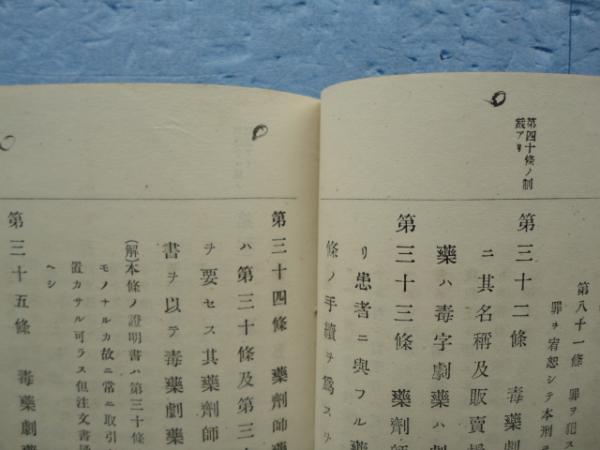 第四十條ノ制
裁アリ
第八十一條 罪ヲ犯ス
罪ヲ宥恕シテ本刑
第三十二條 毒藥劇
ニ其名稱及販賣
藥ハ毒字劇藥ハ劇
第三十三條 藥劑師
リ患者ニ與フル藥
條ノ手續ヲ爲スヲ
第三十四條 藥劑師藥
ハ第三十條及第三十
ヲ要セス其藥劑師
書ヲ以テ毒藥劇藥
(解)本條ノ證明書ハ第三十條
モノナルカ故ニ常ニ取引
置カサル可ラス但注文書
ヘシ
第三十五條 毒藥劇藥